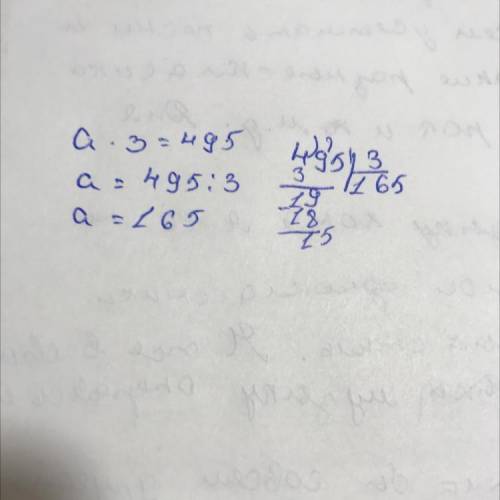 a · 3 = 495
a = 495 : 3
a = 165
495 | 3
3 | 165
19
18
15